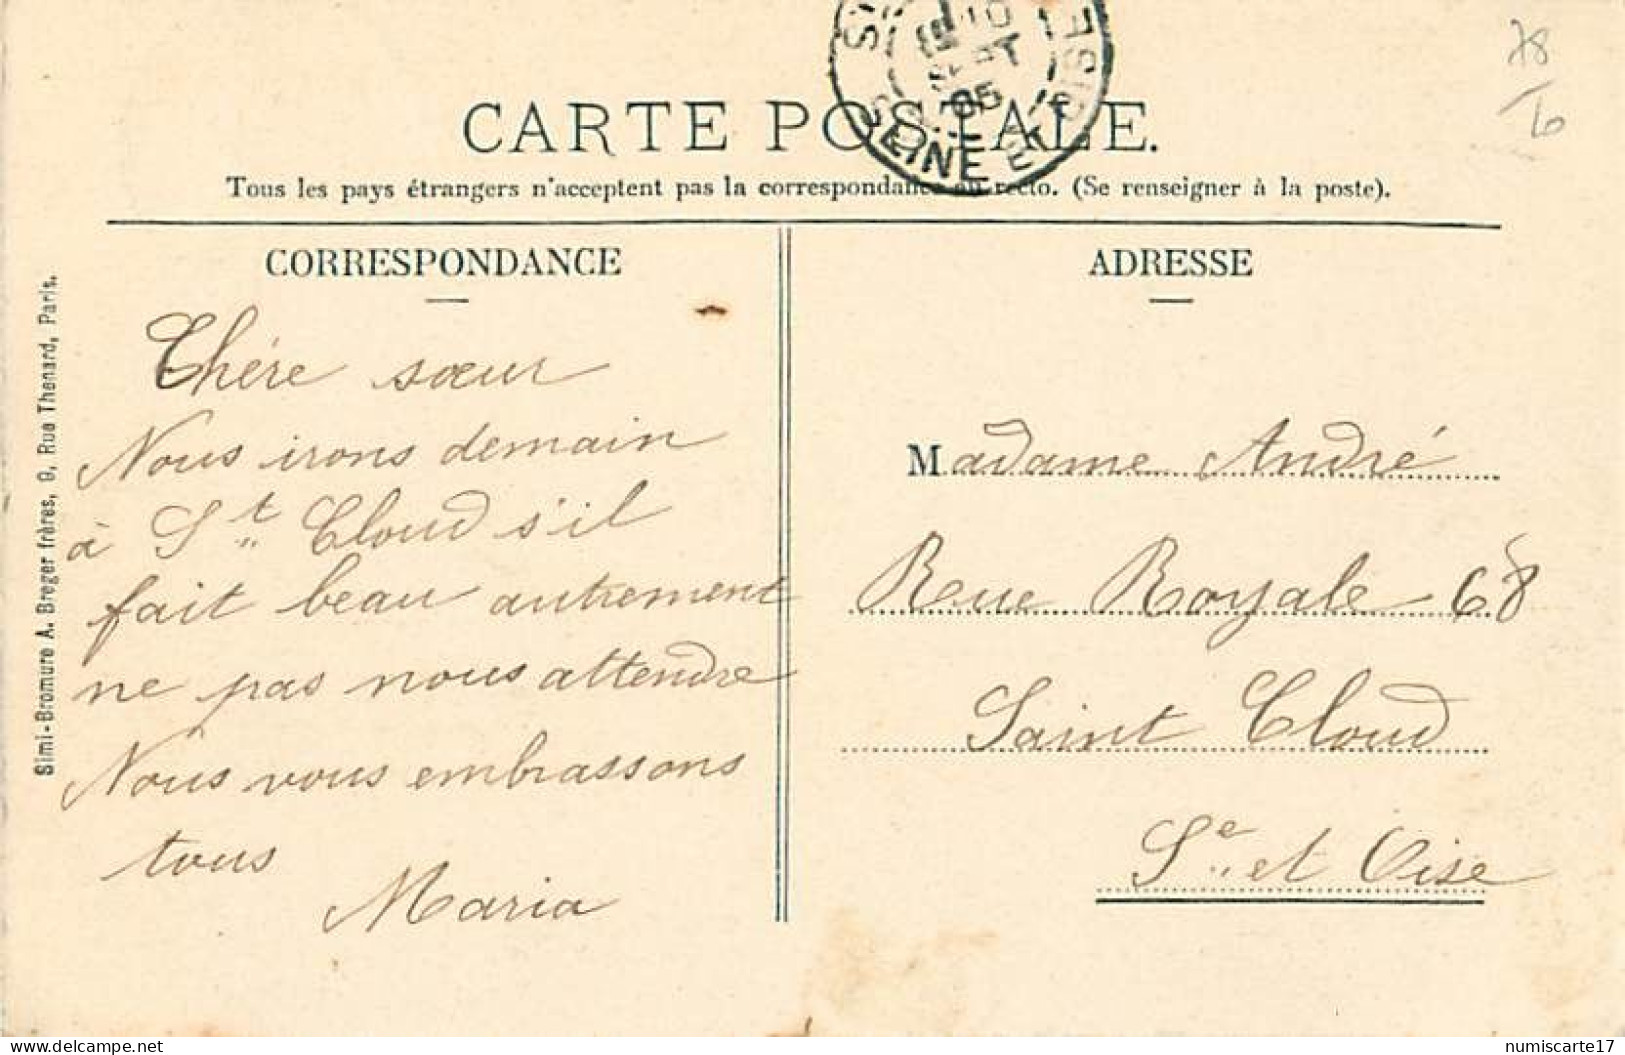 CARTE POSTALE.
Tous les pays étrangers n'acceptent pas la correspondance au recto. (Se renseigner à la poste).
SEINE ET OISE
SEPT
05
78
Simi-Bromure A. Breger frères, 9, Rue Thenard, Paris.
CORRESPONDANCE
Chére sœur
Nous irons demain
à St Cloud s'il
fait beau autrement
ne pas nous attendre
Nous vous embrassons
tous
Maria
ADRESSE
Madame André
Rue Royale 68
Saint Cloud
Se et Oise
numiscarte17